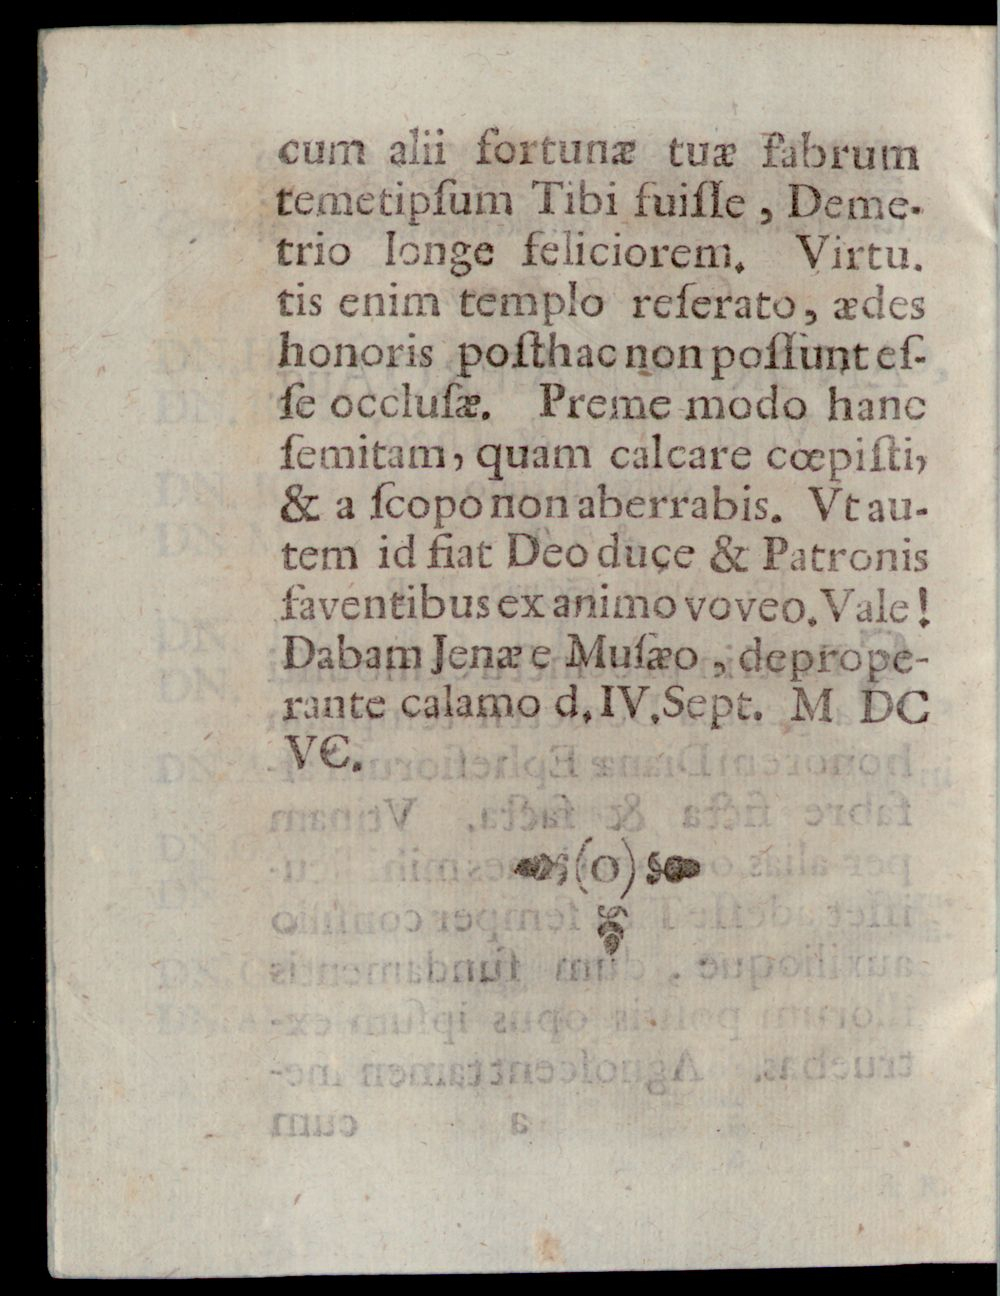 cum alii fortunæ tuæ fabrum
temetipſum Tibi fuiſſe, Deme-
trio longe feliciorem. Virtu.
tis enim templo reſerato, ædes
honoris poſthac non poſſunt eſ-
ſe occluſæ. Preme modo hanc
ſemitam, quam calcare cœpiſti,
& a ſcopo non aberrabis. Vt au-
tem id fiat Deo duce & Patronis
faventibus ex animo voveo. Vale!
Dabam Jenæ e Muſæo, deprope-
rante calamo d. IV. Sept. M DC
VC.
(o)